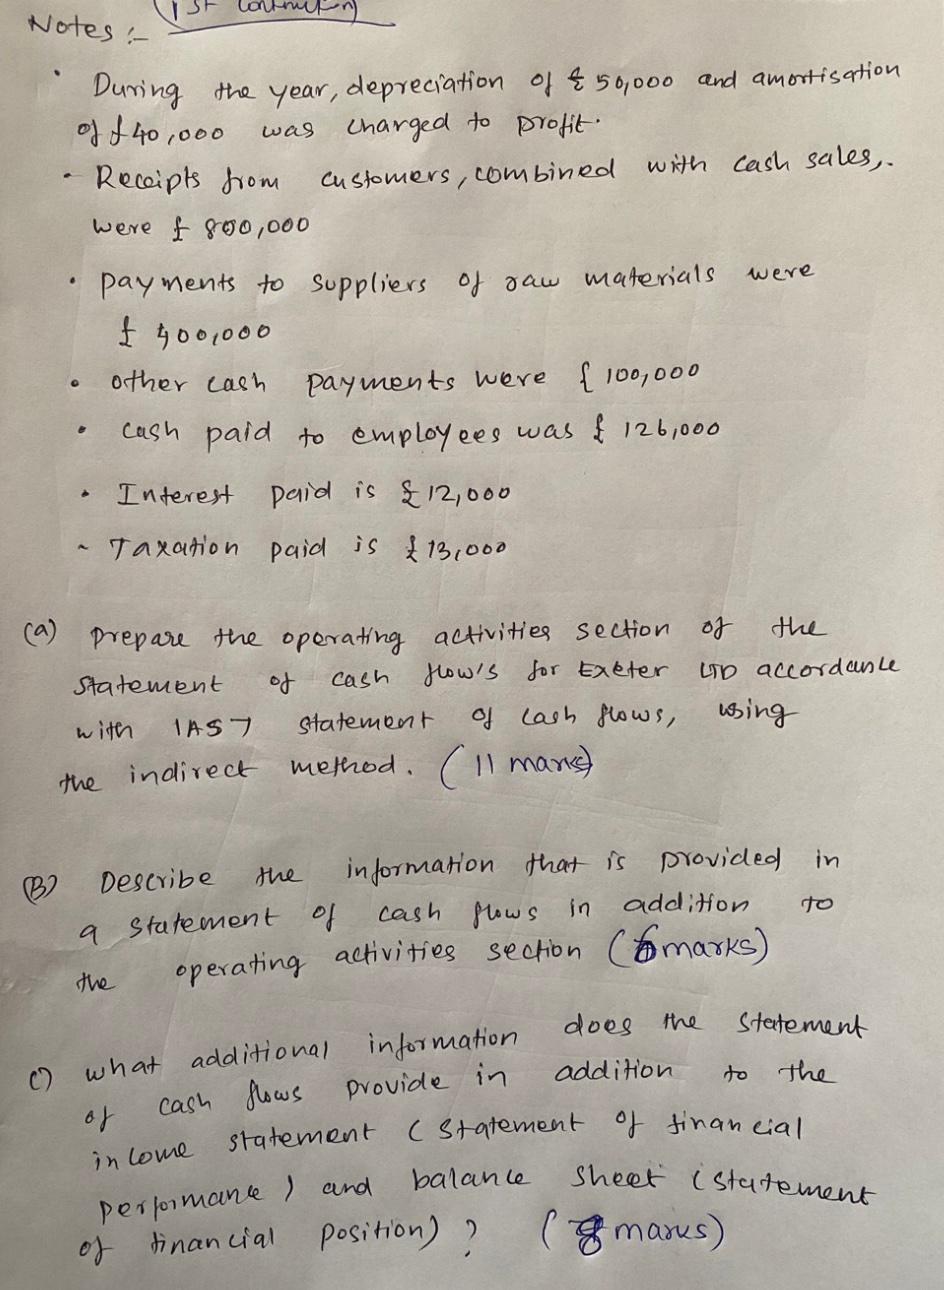 (1st continuation)
Notes :-
• During the year, depreciation of £ 50,000 and amortisation
of £40,000 was charged to profit.
• Receipts from customers, combined with cash sales,.
were £ 800,000
• payments to suppliers of raw materials were
£ 400,000
• other cash payments were £ 100,000
• cash paid to employees was £ 126,000
• Interest paid is £12,000
~ Taxation paid is £13,000
(a) prepare the operating activities section of the
statement of cash flow's for Exeter LTD accordance
with IAS 7 statement of cash flows, using
the indirect method. (11 marks)
(B) Describe the information that is provided in
a statement of cash flows in addition to
the operating activities section (6 marks)
C) what additional information does the statement
of cash flows provide in addition to the
income statement (statement of financial
performance) and balance sheet (statement
of financial position) ? (8 marks)